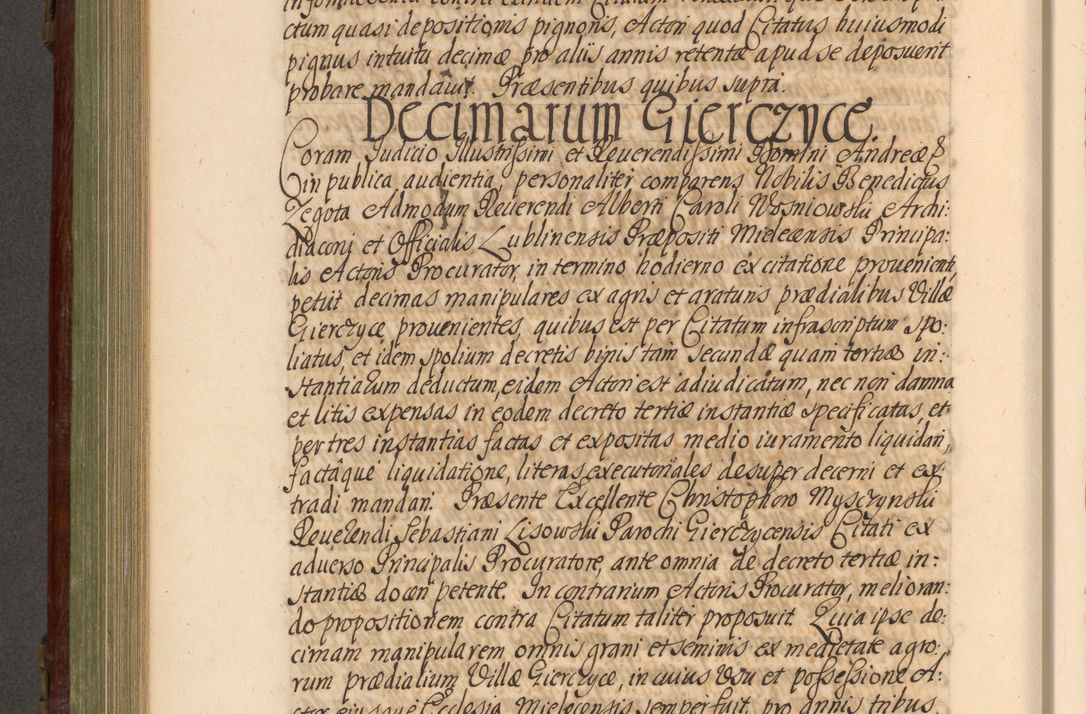 ctum quasi depositionis pignoris, Actori quod Citatus huiusmodi
pignus intuitu decimæ pro aliis annis retentæ apud se deposuerit
probare mandavit. Præsentibus quibus supra.
Decimarum Gierczyce.
Coram Judicio Illustrissimi et Reuerendissimi Domini Andreæ &
in publica audientia, personaliter comparens Nobilis Benedictus
Zegota Admodum Reuerendi Alberti Caroli Wosniowski Archi:
diaconi et Officialis Lublinensis Præpositi Mielecensis Principa:
lis Actoris Procurator, in termino hodierno ex citatione prouenienti,
petiit decimas manipulares ex agris et araturis prædialibus Villæ
Gierczyce prouenientes, quibus est per Citatum infrascriptum spo:
liatus, et idem spolium decretis binis tam secundæ quam tertiæ in:
stantiarum deductum, eidem Actori est adiudicatum, nec non damna
et litis expensas in eodem decreto tertiæ instantiæ specificatas, et
per tres instantias factas et expositas medio iuramento liquidari,
factaque liquidatione, literas executoriales desuper decerni et ex:
tradi mandari. Præsente Excellente Christophoro Mysczynski
Reuerendi Sebastiani Lisowski Parochi Gierczycensis Citati ex
aduerso Principalis Procuratore, ante omnia de decreto tertiæ in:
stantiæ doceri petente. In contrarium Actoris Procurator, melioran:
do propositionem contra Citatum taliter proposuit. Quia ipse de:
cimam manipularem omnis grani et seminis ex medietate agro:
rum prædialium Villæ Gierczyce, in cuius Vsu et possessione A:
ctor eiusque Ecclesia Mielecensis semper fuit, pro annis tribus